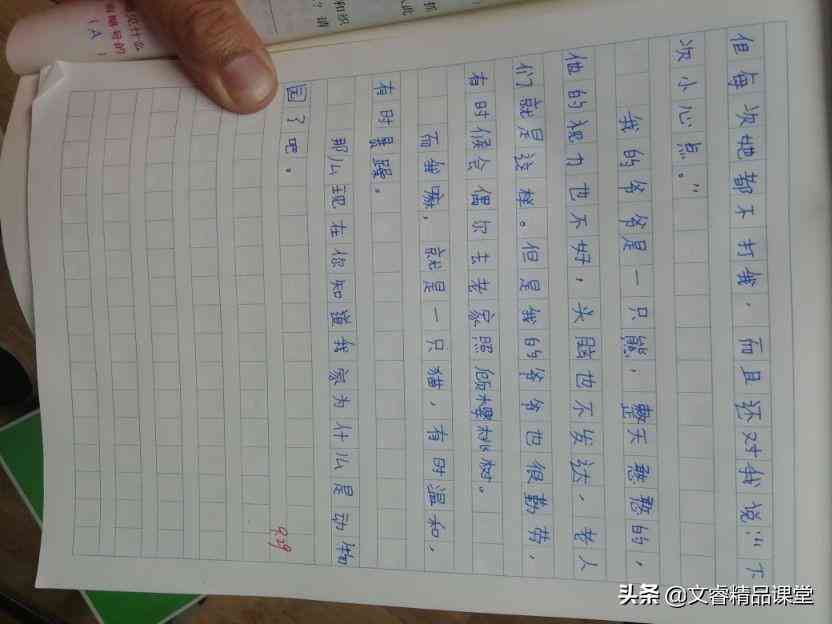 但每次她都不打我，而且还对我说：“下
次小心点。”
我的爷爷是一只熊，整天憨憨的，
他的视力也不好，头脑也不发达，老人
们就是这样。但是我的爷爷也很勤劳，
有时候会偶尔去老家照顾樱桃树。
而我嘛，就是一只猫，有时温和，
有时暴躁。
那么现在你知道我家为什么是动物
园了吧。
9.29
头条 @文睿精品课堂
和织
？请
抓
从此
说什么
省略号的
（A）